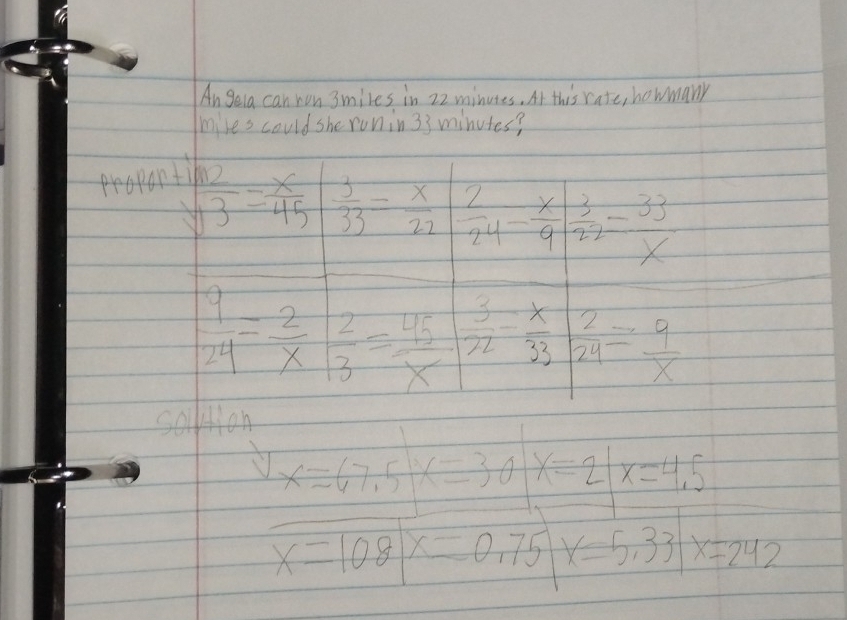 Angela can run 3 miles in 22 minutes. At this rate, how many
miles could she run in 33 minutes?
Proportion
2/3 = x/45 | 3/33 = x/22 | 2/24 = x/9 | 3/22 = 33/x
9/24 = 2/x | 2/3 = 45/x | 3/22 = x/33 | 2/24 = 9/x
solution
x=67.5 | x=30 | x=2 | x=4.5
x=108 | x=0.75 | x=5.33 | x=242